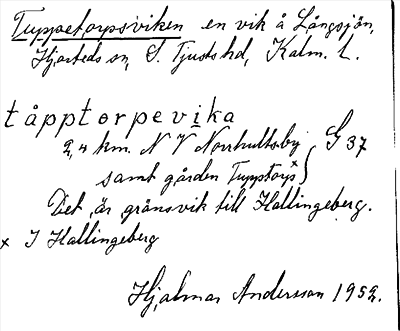 Tuppetorpsviken en vik å Långsjön,
Hjorteds sn, S. Tjusts hd, Kalm. L.
tåpptorpevika
2,4 km. N V Norrhultsby } G 37
samt gården Tupptorpˣ
Det är gränsvik till Hallingeberg.
x I Hallingeberg
Hjalmar Andersson 1952.